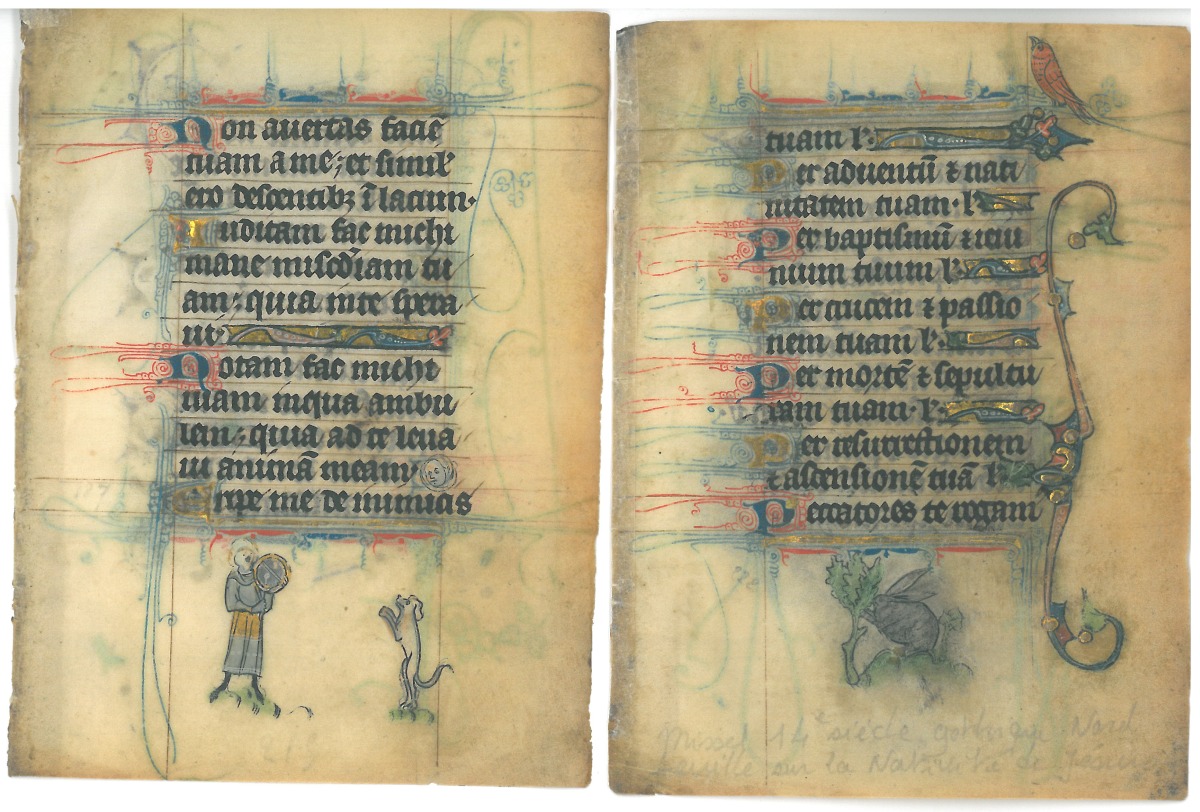 Non auertas faciē
tuam a me; et simil'
ero descentibꝫ ī lacum.
Auditam fac michi
mane misc̄diam tu
am; quia inte spera
ui.
Notam fac michi
uiam inqua ambu
lem; quia ad te leua
ui animā meam.
Eripe me de inimicis
tuam l'.
Per aduentū ⁊ nati
uitatem tuam. l'.
Per baptismū ⁊ ieiu
nium tuum l'.
Per crucem ⁊ passio
nem tuam l'.
Per mortē ⁊ sepultu
ram tuam. l'.
Per resurrectionem
⁊ ascensionē tuā l'.
Peccatores te rogam
Missel 14e siècle gothique Nord
feuille sur la Nativité de Jésus